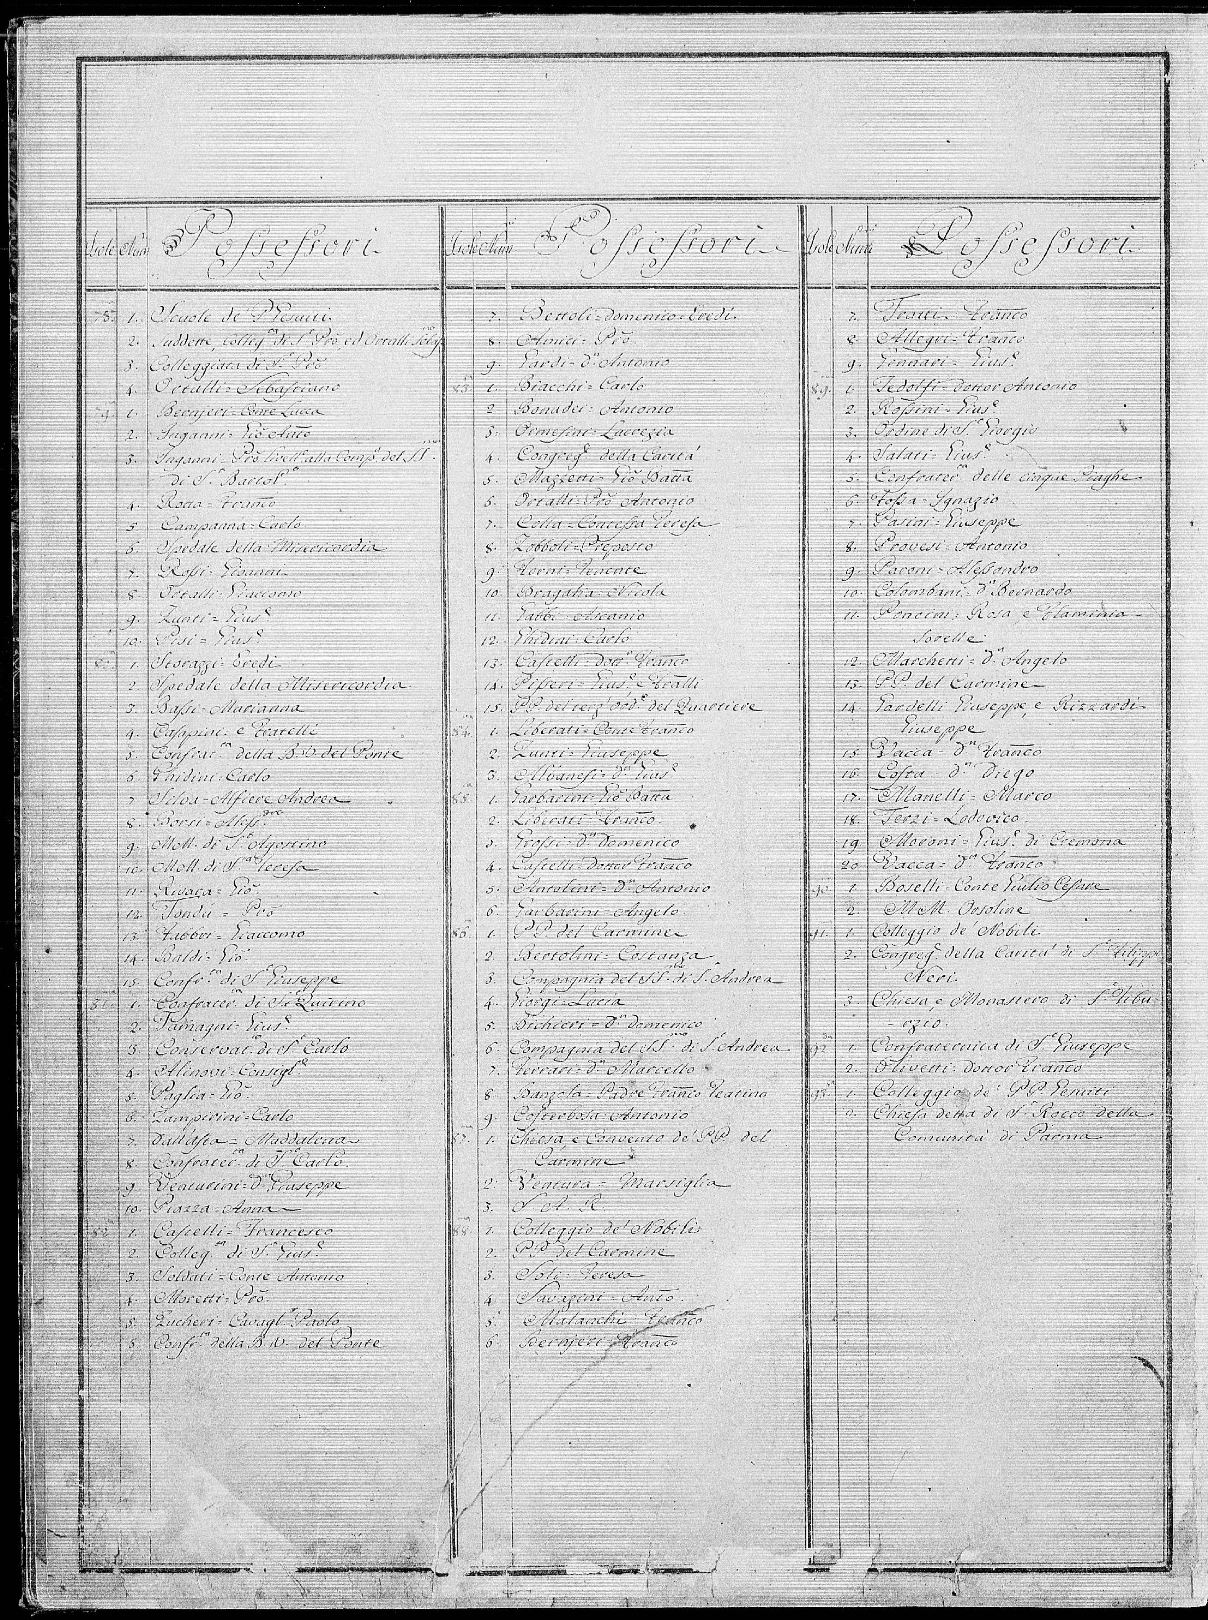 Isole Num. Possessori
78. 1. Scuole de' P. Gesuiti.
2. Suddette, Colleg.ª di S.ʳ Prõ, ed Ortalli
3. Colleggiata di S.ʳ Prõ
4. Ortalli = Sebastiano
79. 1. Bernieri = Conte Luca
2. Inganni = Giõ Antõ
3. Inganni = Prõ Livell.º alla Comp.ª del SS.
di S.ⁿ Bartol.º
4. Rotta = Francõ
5. Campanna = Carlo
6. Spedale della Misericordia
7. Rossi = Gioanni
8. Ortalli = Giacomo
9. Zunti = Gius.ᵉ
10. Pisi = Gius.ᵉ
80. 1. Storazzi = Eredi
2. Spedale della Misericordia.
3. Bassi = Marianna
4. e Fratelli
5. Confrat.ª della B. V. del Ponte
6. Ghidini = Carlo
7. Silva = Alfiere Andrea
8. Borsi = Aless.ᵈʳᵒ
9. Moll. di S.ᵗ Agostino
10. Moll. di S.ᵗᵃ Teresa
11. Rivara = Giõ.
12. Tondù = Prõ
13. Fabbri = Giacomo
14. Baldi = Giõ
15. Confr.ª di S.ⁿ Giuseppe
81. 1. Confrater.ª di S.ⁿ Quirino
2. Tamagni = Gius.ᵉ
3. Conservat.º di S.ⁿ Carlo
4. Alinovi = Consigl.ᵉ
5. Paglia = Giõ.
6. Lampirini = Carlo
7. Dall'asta = Maddalena
8. Confrater.ª di S.ⁿ Carlo.
9. Venturini = D.ⁿ Giuseppe
10. Piazza = Anna
82. 1. Castelli = Francesco
2. Colleg.º di S.ⁿ Gius.ᵉ
3. Soldati = Conte Antonio
4. Moretti = Prõ.
5. Zucheri = Cavagl.ʳ Paolo
6. Confr.ª della B. V. del Ponte
Isole Num. Possessori
7. Bettoli = Domenico = Eredi.
8. Amici = Prõ.
9. Pardi = D.ⁿ Antonio
83. 1. Biacchi = Carlo
2. Bonadei = Antonio
3. Ormesini = Lucrezia
4. Congreg.ᵉ della Carità
5. Mazzetti = Giõ Batta
6. Ortalli = Prõ Antonio
7. Colla = Contessa Teresa
8. Zobboli = Preposto
9. = Tenente
10. Bragalia = Nicola
11. Fabbi = Ascanio
12. Ghidini = Carlo
13. Castelli = Dott.ʳ Francõ
14. Pisseri = Gius.ᵉ, Fratlli
15. P.P. del terz' Ord.ᵉ del Quartiere
84. 1. Liberati = Conte Francõ
2. Zunti = Giuseppe
3. Albanesi = D.ⁿ Gius.ᵉ
85. 1. Garbarini = Giõ Batta
2. Liberati = Francõ.
3. Grossi = D.ⁿ Domenico
4. Castelli Dottor Francõ
5. Antolini = D.ⁿ Antonio
6. Garbarini = Angelo.
86. 1. P.P. del Carmine
2. Bertolini = Costanza
3. Compagnia del SS.ᵐᵒ di S.ᵗ Andrea
4. Giorgi = Lucia
5. Bichieri = D.ⁿ Domenico
6. Compagnia del SS.ᵐᵒ di S.ᵗ Andrea
7. Ferrari = D.ⁿ Marcello
8. Banzola = Padre Francõ Teatino
9. Costerbosa = Antonio
87. 1. Chiesa, e Convento de' P.P. del
Carmine
2. Ventura = Marsiglia
3. S. A. R.
88. 1. Colleggio de' Nobili
2. P.P. del Carmine
3. Soli = Teresa
4. Savazini = Antõ.
5. Malaschi = Francõ
6. Bernieri = Francõ
Isole Num. Possessori
7. = Francõ
8. Allegri = Francõ
9. Gennari = Gius.ᵉ
89. 1. Fedolfi = Dottor Antonio
2. Rossini = Gius.ᵉ
3. Ordine di S. Giorgio
4. Salati = Gius.ᵉ
5. Confrater.ª delle cinque Piaghe
6. Fossa = Ignazio
7. Pasini = Giuseppe
8. Provesi = Antonio
9. Paroni = Alessandro
10. Colombani = D.ⁿ Bernardo
11. Poncini = Rosa, e Flaminia
Sorelle
12. Marchetti = D.ⁿ Angelo
13. P.P. del Carmine
14. Gardelli Giuseppe, e Rizzardi
Giuseppe
15. Vacca = D.ⁿ Francõ
16. Costa = D.ⁿ Diego
17. Manelli = Marco
18. Terzi = Lodovico.
19. Moroni = Gius.ᵉ di Cremona
20. Bacca = D.ⁿ Francõ
90. 1. Boselli = Conte Giulio Cesare
2. M.M. Orsoline
91. 1. Colleggio de' Nobili
2. Congreg.ᵉ della Carità di S. Filippo
Neri.
3. Chiesa, e Monastero di S.ⁿ Tibu
= rzio.
92. 1. Confraternita di S.ⁿ Giuseppe
2. Olivetti = Dottor Francõ
93. 1. Colleggio de' P.P. Gesuiti
2. Chiesa detta di S.ⁿ Rocco della
Comunità di Parma